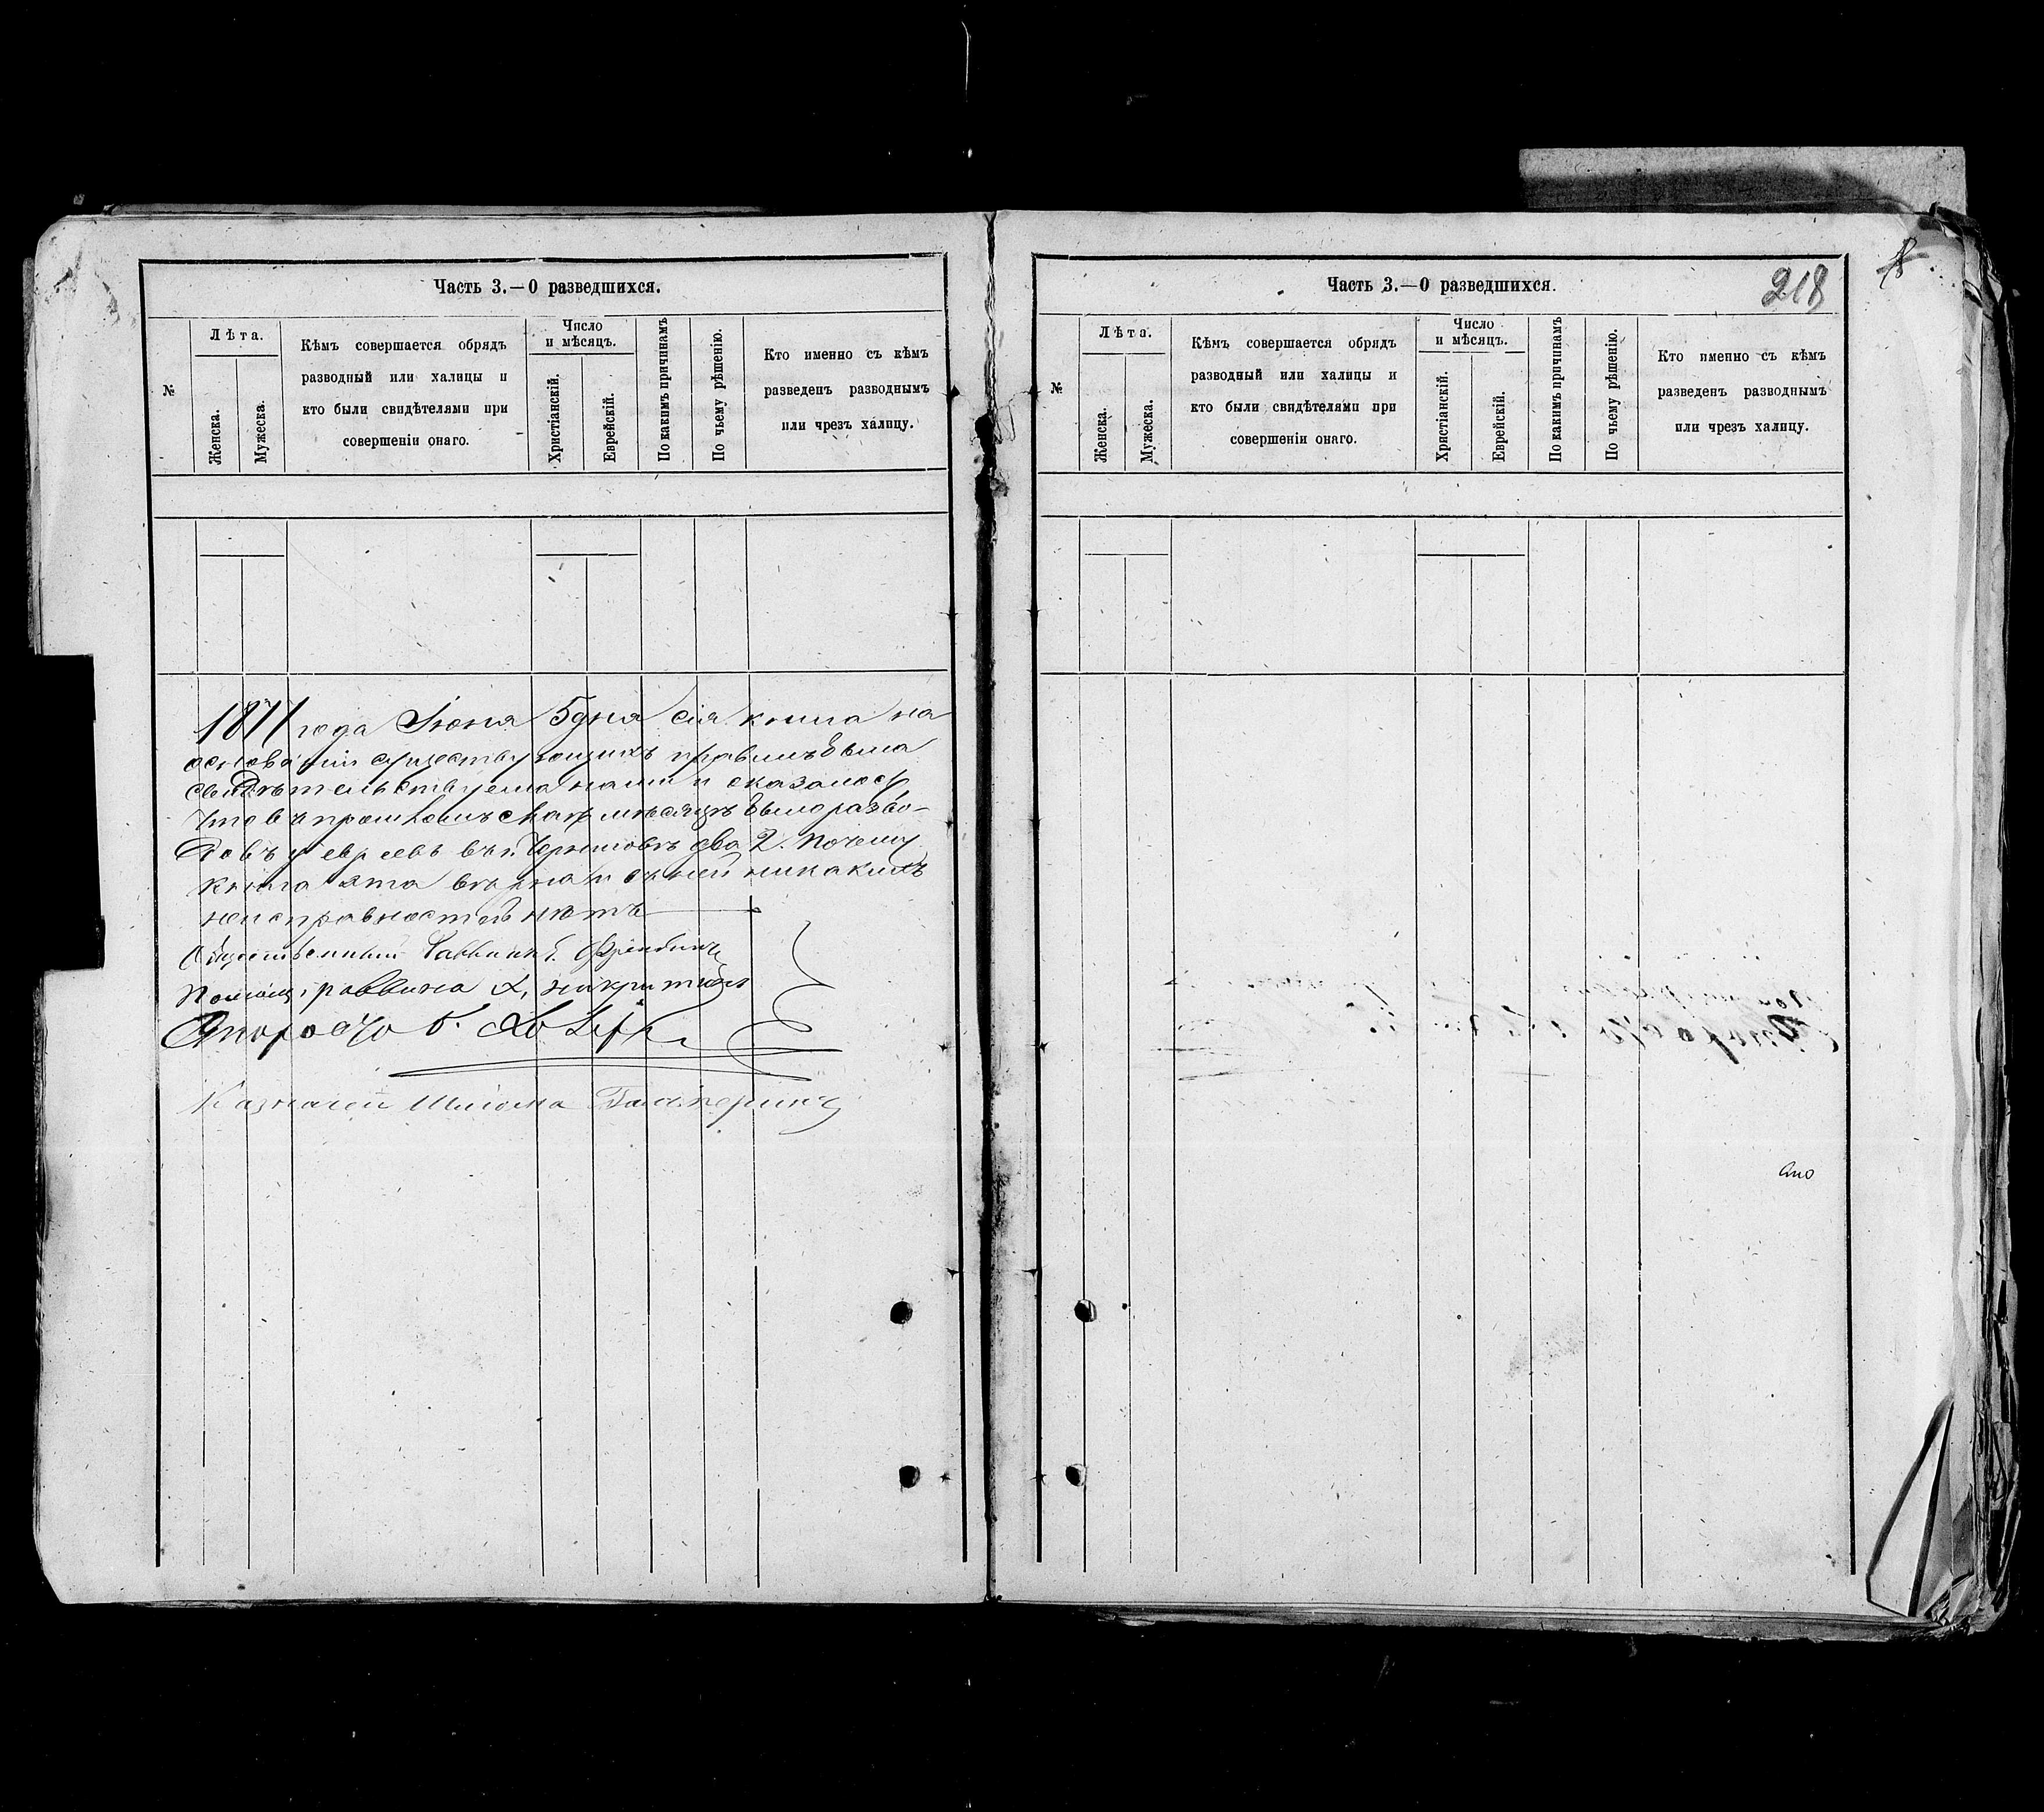 Часть 3.—О разведшихся.
№
Лѣта.
Женска.
Мужеска.
Кѣмъ совершается обрядъ
разводный или халицы и
кто были свидѣтелями при
совершеніи онаго.
Число
и мѣсяцъ.
Христіанскій.
Еврейскій.
По какимъ причинамъ
По чьему рѣшенію.
Кто именно съ кѣмъ
разведенъ разводнымъ
или чрезъ халицу.
1877 года Іюня 5 дня сія книга на
основаніи существующихъ правилъ была
свидѣтельствуема нами и оказалось
что въ прошломъ Маѣ мѣсяцѣ было разво-
довъ у евреевъ въ г. два 2. Почему
книга эта вѣрна и въ ней никакихъ
неисправностей нѣтъ
Общественный Раввинъ
Помощ. раввина
Староста
Казначей Шлiома Гальперинъ
Часть 3.—О разведшихся.
218
№
Лѣта.
Женска.
Мужеска.
Кѣмъ совершается обрядъ
разводный или халицы и
кто были свидѣтелями при
совершеніи онаго.
Число
и мѣсяцъ.
Христіанскій.
Еврейскій.
По какимъ причинамъ
По чьему рѣшенію.
Кто именно съ кѣмъ
разведенъ разводнымъ
или чрезъ халицу.